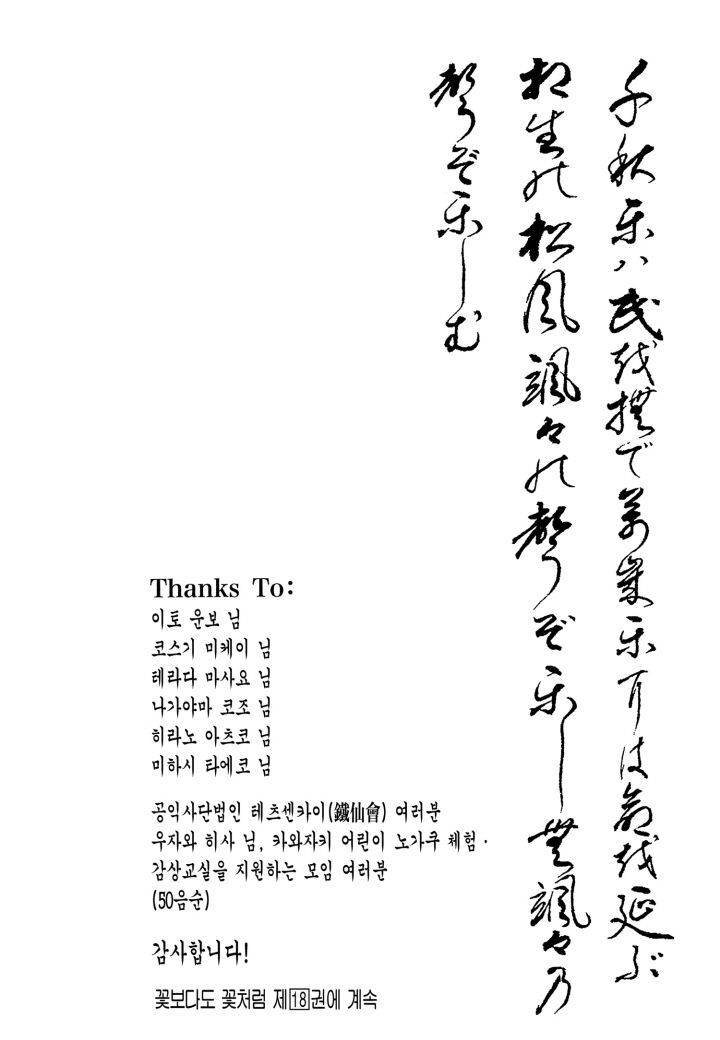 千秋楽ハ民を撫で萬歳楽には命を延ぶ
相生の松風颯々の聲ぞ楽しむ颯々乃
聲ぞ楽しむ
Thanks To:
이토 운보 님
코스기 미케이 님
테라다 마사요 님
나가야마 코조 님
히라노 아츠코 님
미하시 타에코 님
공익사단법인 테츠센카이(鐵仙會) 여러분
우자와 히사 님, 카와자키 어린이 노가쿠 체험·
감상교실을 지원하는 모임 여러분
(50음순)
감사합니다!
꽃보다도 꽃처럼 제18권에 계속